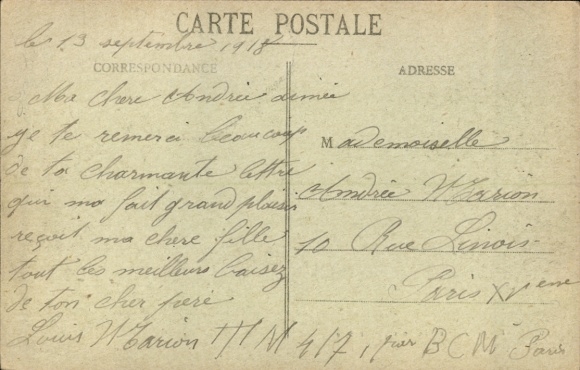 CARTE POSTALE
le 13 septembre 1918
CORRESPONDANCE
ADRESSE
Ma chere Andrée aimée
ye te remerci beaucoup
de ta charmante lettre
qui ma fait grand plaisir
reçoit ma chere fille
tout les meilleurs baisez
de ton cher pere
Louis Marion HM 417, par BCM Paris
Mademoiselle
Andrée Marion
10 Rue Linois
Paris XVeme